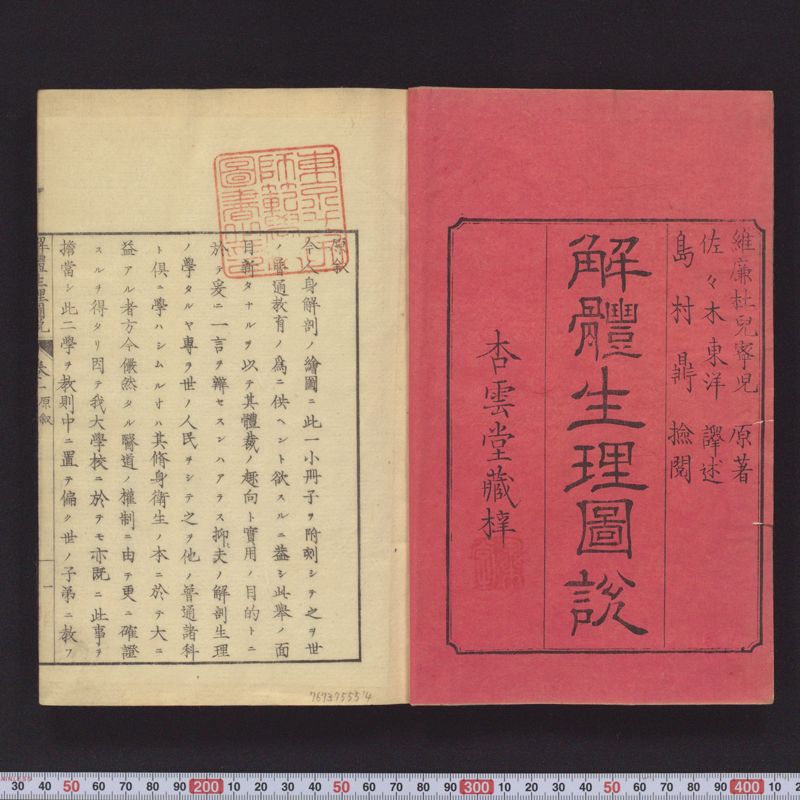 維廉杜兒寧児 原著
佐々木東洋 譯述
島村鼎 撿閲
解體生理圖説
杏雲堂藏梓
原叙
今人身解剖ノ繪圖ニ此一小冊子ヲ附刻シテ之ヲ世
ノ普通教育ノ爲ニ供ヘント欲スルニ葢シ此舉ノ面
目新タナルヲ以テ其體裁ノ趣向ト實用ノ目的トニ
於テ爰ニ一言ヲ辨セスンハアラス抑夫ノ解剖生理
ノ學タルヤ專ヲ世ノ人民ヲシテ之ヲ他ノ普通諸科
ト倶ニ學ハシムルオハ其脩身衛生ノ本ニ於テ大ニ
益アル者方今儼然タル醫道ノ權制ニ由テ更ニ確證
スルヲ得タリ因テ我大學校ニ於テモ亦既ニ此事ヲ
擔當シ此二學ヲ教則中ニ置テ偏ク世ノ子弟ニ教フ
解體生理圖説 卷一 原叙 一
7673755514
30 40 50 60 70 80 90 200 10 20 30 40 50 60 70 80 90 300 10 20 30 40 50 60 70 80 90 400 10